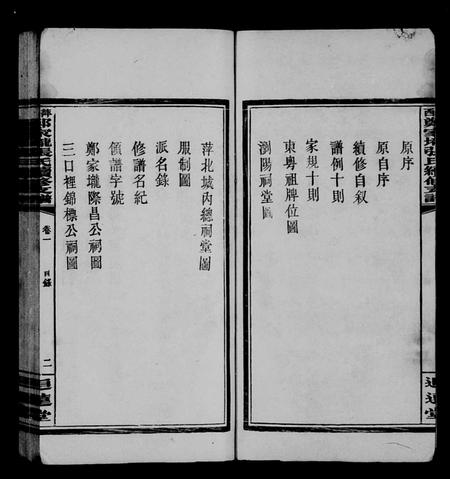 原序
原自序
續修自叙
譜例十則
家規十則
東粵祖牌位圖
瀏陽祠堂圖
萍北城内總祠堂圖
服制圖
派名錄
修譜名紀
領譜字號
鄭家壠際昌公祠圖
三口裡錦標公祠圖
卷一
目錄
二